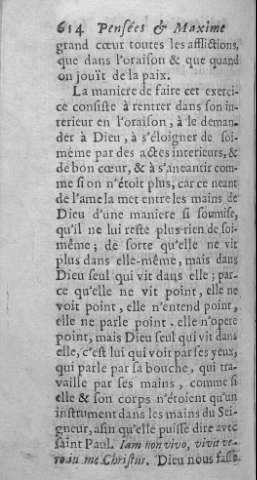 614 Pensées & Maxime
grand cœur toutes les afflictions,
que dans l'oraison & que quand
on joüit de la paix.
La maniere de faire cet exerci-
ce consiste à rentrer dans son in-
terieur en l'oraison, à le deman-
der à Dieu, à s'éloigner de soi-
même par des actes interieurs, &
de bon cœur, & à s'aneantir com-
me si on n'étoit plus, car ce neant
de l'ame la met entre les mains de
Dieu d'une maniere si soumise,
qu'il ne lui reste plus rien de soi-
même; de sorte qu'elle ne vit
plus dans elle-même, mais dans
Dieu seul qui vit dans elle; par-
ce qu'elle ne vit point, elle ne
voit point, elle n'entend point,
elle ne parle point. elle n'opere
point, mais Dieu seul qui vit dans
elle, c'est lui qui voit par ses yeux,
qui parle par sa bouche, qui tra-
vaille par ses mains, comme si
elle & son corps n'étoient qu'un
instrument dans les mains du Sei-
gneur, afin qu'elle puisse dire avec
saint Paul. Iam non vivo, vivit ve-
ro in me Christus. Dieu nous fasse